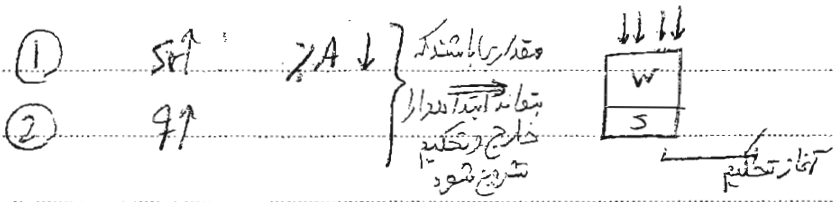 ① Sr↑ %A ↓
② q↑
مقداری باشند که
بتوانند ابتدا هوا را
خارج و تحکیم
شروع شود
W
S
آغاز تحکیم